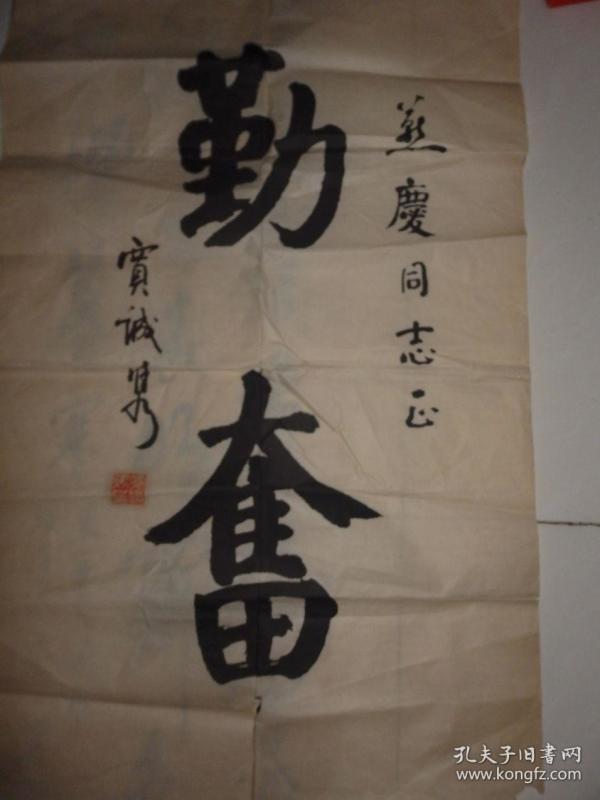 燕慶同志正
勤奮
賈誠雋
孔夫子旧书网
www.kongfz.com